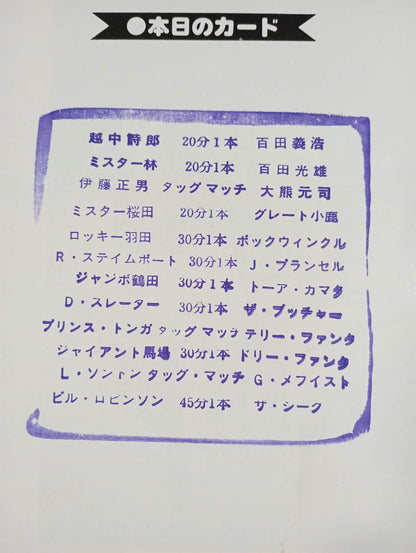 ●本日のカード
越中詩郎 20分1本 百田義浩
ミスター林 20分1本 百田光雄
伊藤正男 タッグマッチ 大熊元司
ミスター桜田 20分1本 グレート小鹿
ロッキー羽田 30分1本 ボックウィンクル
R・ステイムボート 30分1本 J・ブランゼル
ジャンボ鶴田 30分1本 トーア・カマタ
D・スレーター 30分1本 ザ・ブッチャー
プリンス・トンガ タッグ マッチ テリー・ファンク
ジャイアント馬場 30分1本 ドリー・ファンク
L・ソントン タッグ・マッチ G・メフイスト
ビル・ロビンソン 45分1本 ザ・シーク